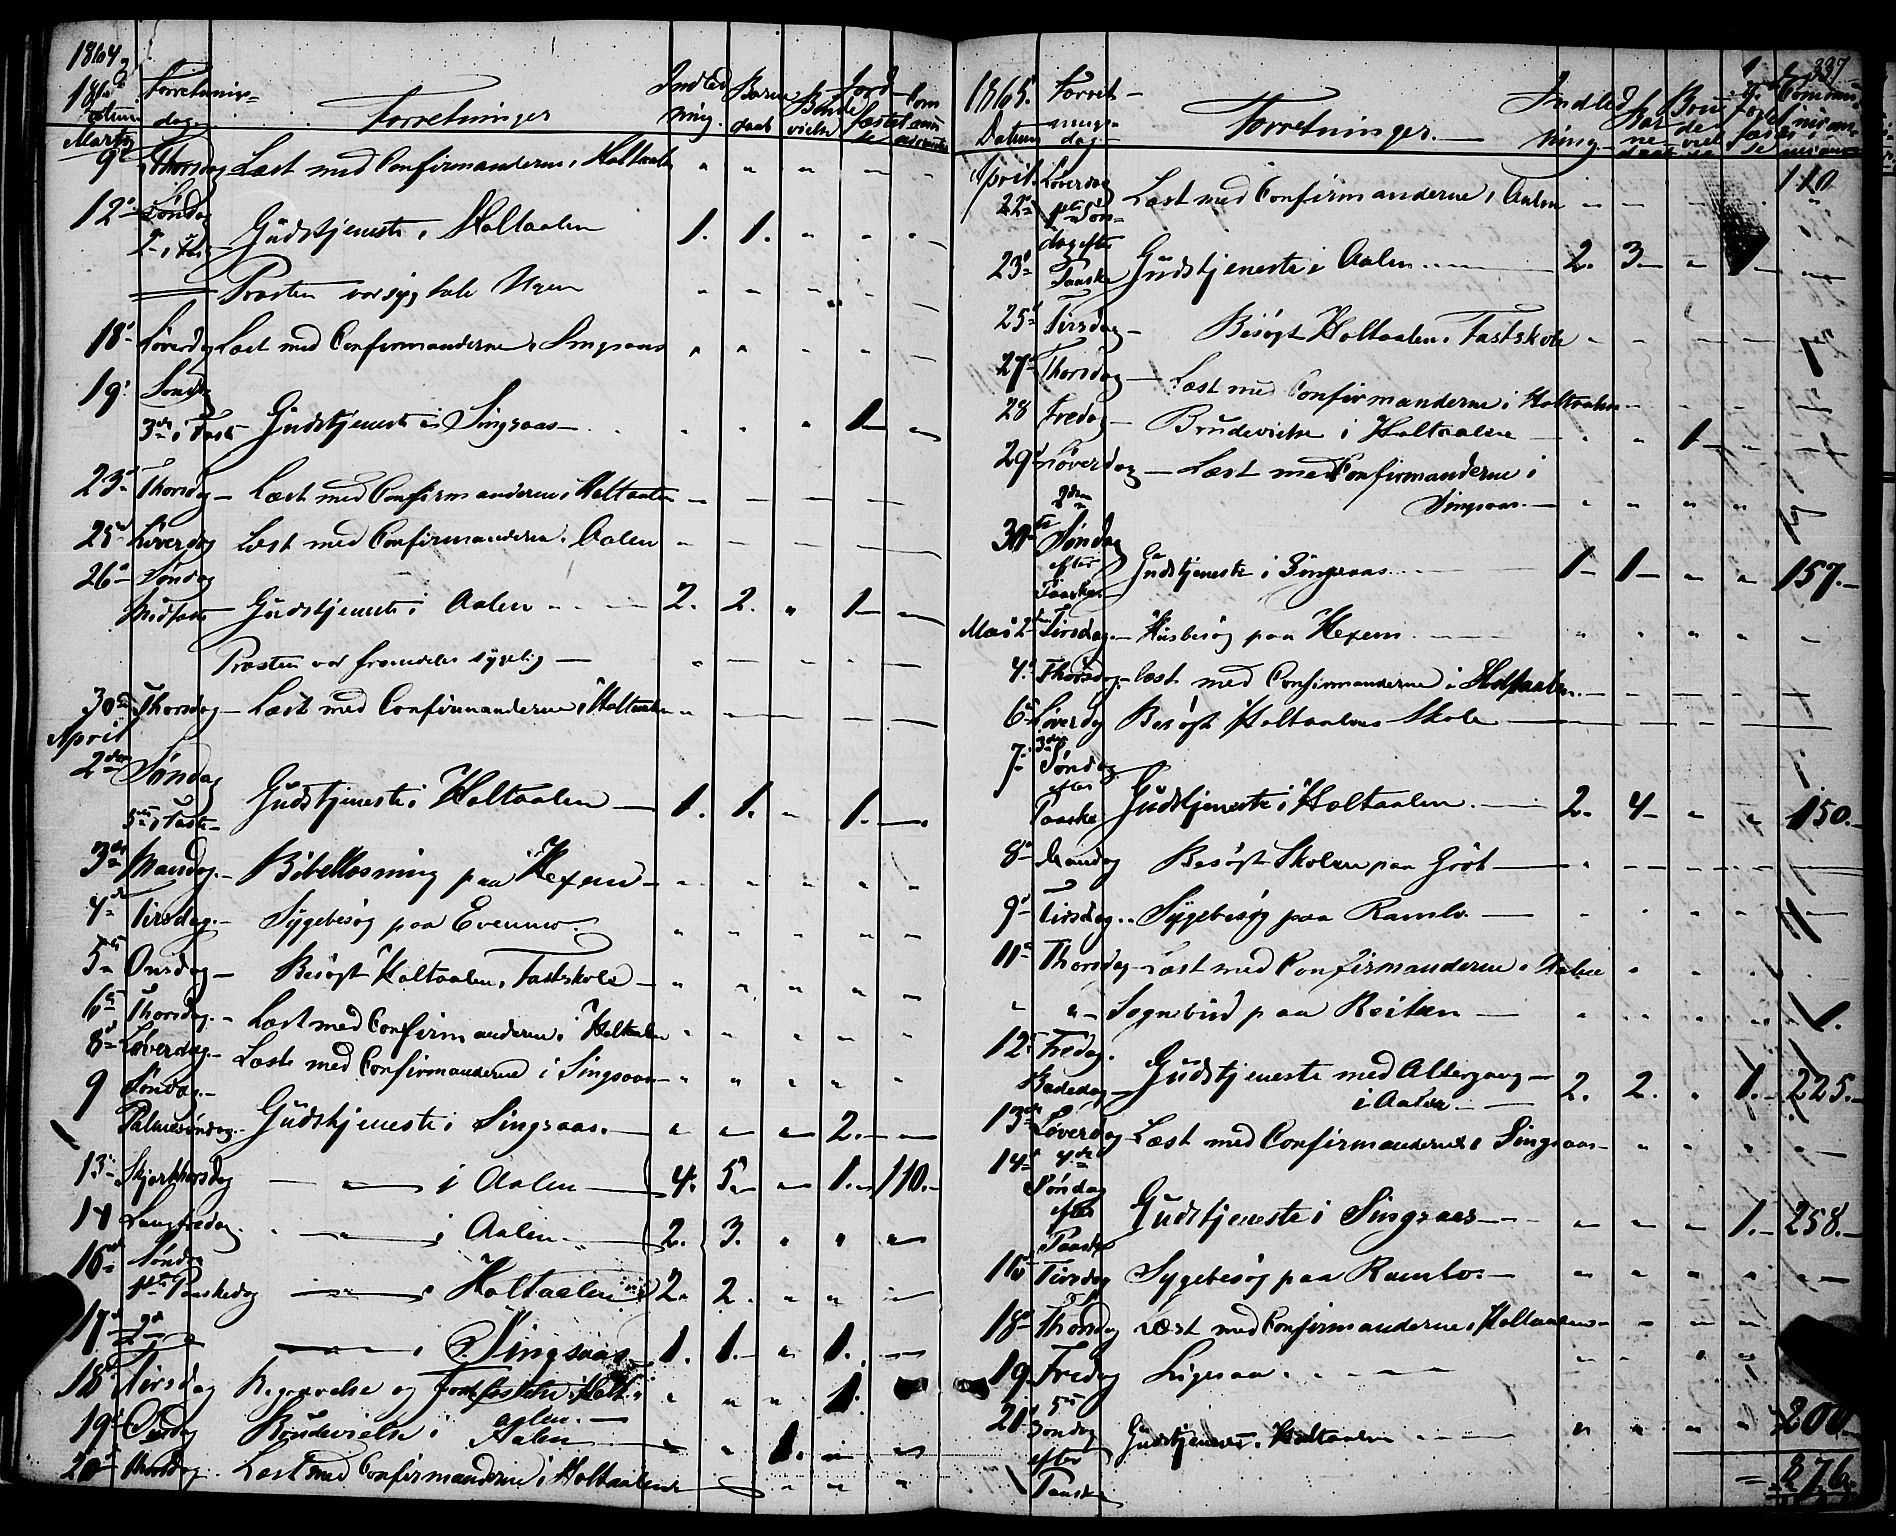 1864
1865 Forretnings- Forretninger Indled Barne Brude Jord Com
Datum dag. ning. daab vielse fæstel muni
Marts
9de Thorsdag Læst med Confirmanderne i Holtaalen " " " - -
12te Søndag
2den i Faste Gudstjeneste i Holtaalen 1. 1. " " "
Præsten var syg hele Ugen " " " " -
18de Løverdag Læst med Confirmanderne i Singsaas " " " " -
19de Søndag
3die i Faste Gudstjeneste i Singsaas " " " 1 -
23de Thorsdag - Læst med Confirmanderne i Holtaalen - - - - -
25de Løverdag Læst med Confirmanderne i Aalen - - - - -
26de Søndag
Midfaste Gudstjeneste i Aalen 2. 2. " 1 -
Præsten var fremdeles sygelig - " - - - -
30te Thorsdag - Læst med Confirmanderne i Holtaalen " - - - -
April
2den Søndag
5te i Faste Gudstjeneste i Holtaalen - 1. 1. - 1. -
3die Mandag. - Bibellæsning paa Hexem - " " " " "
4de Tirsdag. - Sygebesøg paa Evenmo. " " " " "
5te Onsdag - Besøgt Holtaalens Fastskole - " " " " "
6te Thorsdag. - Læst med Confirmanderne i Holtaalen " " " " "
8de Løverdag. - Læste med Confirmanderne i Singsaas - " " " " "
9 Søndag. -
Palmesøndag. Gudstjeneste i Singsaas. - " - - 2. -
13de Skjærthorsdag - " - i Aalen - 4. 5. - 1. 110. -
14 Langfredag. - " - i Aalen 2. 3. " " "
16de Søndag
1ste Paaskedag - " - i Holtaalen 2. 2. " " -
17de 2den - " - i Singsaas 1. 1. " 1. -
18de Tirsdag Begravelse og Jordfæstelse i Holt-
aalen. - " " " 1.
19de Onsdag Brudevielse i Aalen - " 1. - "
20de Thorsdag. Læst med Confirmanderne i Holtaalen " " " "
337
1865. Forret- Forretninger. Indled Bar Brud
Datum nings- ning. ne de
dag daab viel
April Løverdag 110
22de Læst med Confirmanderne i Aalen - - -
1ste Søn-
dag efter
23de Paaske Gudstjeneste i Aalen 2. 3. " - -
25de Tirsdag - Besøgt Holtaalens Fastskole " - - - -
27de Thorsdag - Læst med Confirmanderne i Holtaalen - - - -
28 Fredag - Brudevielse i Holtaalen - " " 1 -
29de Løverdag - Læst med Confirmanderne i
Singsaas. - " " " "
2den
30te Søndag
efter
Paaske Gudstjeneste i Singsaas 1 - 1 - " " 157. -
Mai 2den Tirsdag. - Husbesøg paa Hexem " " " " -
4de Thorsdag - læst med Confirmanderne i Holtaalen. - - - -
6te Løverdag Besøgt Holtaalens Skole - - - -
7de 3die Søndag
efter
Paaske Gudstjeneste i Holtaalen. 2. 4 - " " 150. -
8de Mandag Besøgt Skolen paa Grøt - - - - -
9de Tirsdag. Sygebesøg paa Ramlo. - " " " " -
11te Thorsdag - Læst med Confirmanderne i Aalen " " "
" " Sognebud paa Reitan - " " " "
12te Fredag.
Bededag Gudstjeneste med Altergang -
i Aalen 2. 2. " 1. - 225. -
13de Løverdag Læst med Confirmanderne i Singsaas - " " " "
14de 4de
Søndag
efter
Paaske Gudstjeneste i Singsaas - " - " 1. - 258. -
16de Tirsdag Sygebesøg paa Ramlo. - " " " " -
18de Thorsdag Læst med Confirmanderne i Holtaalen - " " " "
19. Fredag Ligesaa. - - - " " " "
21de 5te
Søndag
efter
Paaske Gudstjeneste i Holtaalen " " " " 200
= 876.